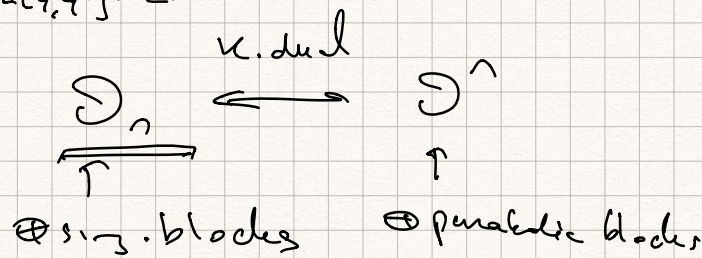 K. dual
O_n ⟷ O^n
↑ ↑
⊕ sing. blocks ⊕ parabolic blocks